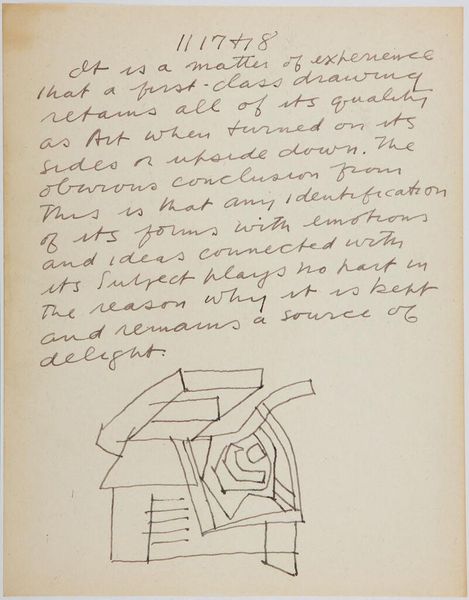 11 17 + 18
It is a matter of experience
that a first-class drawing
retains all of its quality
as Art when turned on its
sides or upside down. The
obvious conclusion from
this is that any identification
of its forms with emotions
and ideas connected with
its Subject plays no part in
the reason why it is kept
and remains a source of
delight.